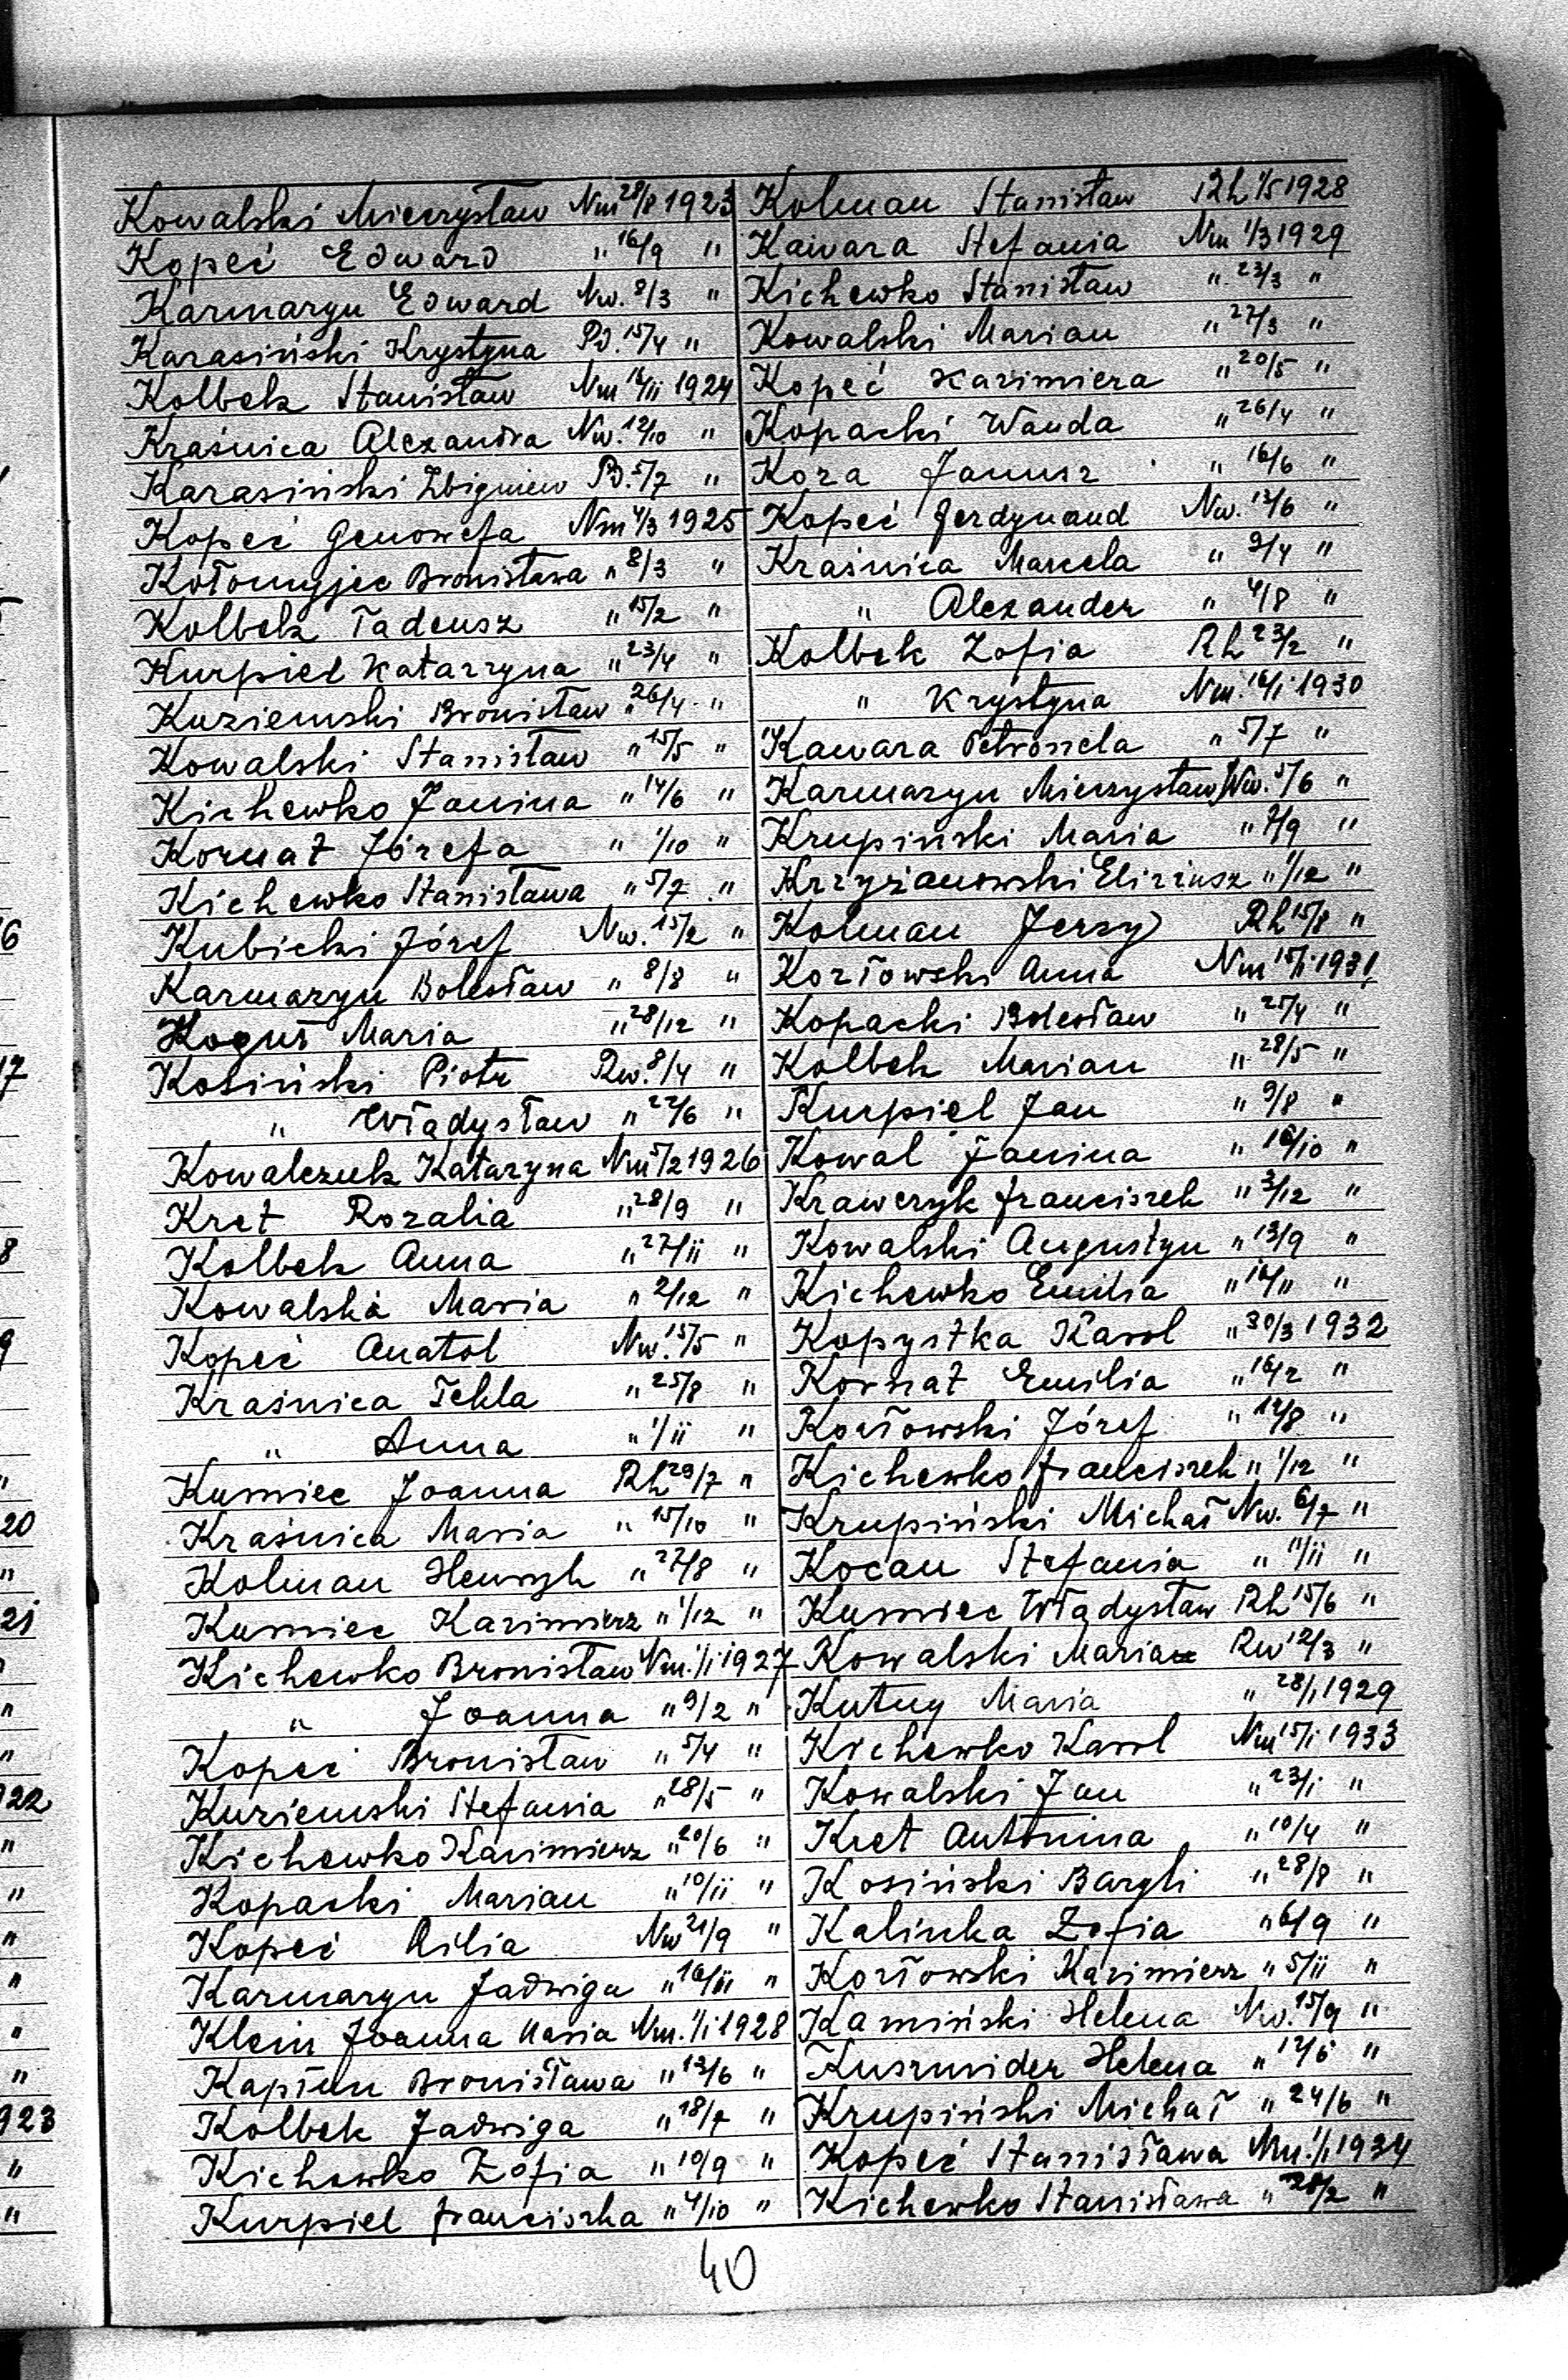 Kowalski Mieczysław Nm 28/8 1923
Kopeć Edward " 16/9 "
Karmazyn Edward Nw. 8/3 "
Karasiński Krystyna Pd. 15/4 "
Kolbek Stanisław Nm 16/ii 1924
Kraśnica Alexandra Nw. 12/10 "
Karasiński Zbigniew Pd. 5/7 "
Kopeć Genowefa Nm 4/3 1925
Kołomyjec Bronisława " 8/3 "
Kolbek Tadeusz " 15/2 "
Kurpiel Katarzyna " 23/4 "
Kuziemski Bronisław " 26/4 "
Kowalski Stanisław " 15/5 "
Kichewko Janina " 14/6 "
Kornat Józefa " 1/10 "
Kichewko Stanisława " 5/7 "
Kubicki Józef Nw. 15/2 "
Karmazyn Bolesław " 8/8 "
Koguś Maria " 28/12 "
Kosiński Piotr Rw. 8/4 "
" Władysław " 22/6 "
Kowalczuk Katarzyna Nm 5/2 1926
Kret Rozalia " 28/9 "
Kolbek Anna " 27/ii "
Kowalska Maria " 2/12 "
Kopeć Anatol Nw. 15/5 "
Kraśnica Tekla " 25/8 "
" Anna " 1/ii "
Kumiec Joanna Rh 29/7 "
Kraśnica Maria " 15/10 "
Kolman Henryk " 27/8 "
Kumiec Kazimierz " 1/12 "
Kichewko Bronisław Nm. 1/i 1927
" Joanna " 9/2 "
Kopeć Bronisław " 5/4 "
Kuziemski Stefania " 28/5 "
Kichewko Kazimierz " 20/6 "
Kopacki Marian " 10/ii "
Kopeć Lilia Nw 21/9 "
Karmazyn Jadwiga " 16/ii "
Klein Joanna Maria Nm. 1/i 1928
Kapłun Bronisława " 13/6 "
Kolbek Jadwiga " 18/7 "
Kichewko Zofia " 10/9 "
Kurpiel Franciszka " 4/10 "
Kolman Stanisław Rh 1/5 1928
Kawara Stefania Nm 1/3 1929
Kichewko Stanisław " 23/3 "
Kowalski Marian " 27/3 "
Kopeć Kazimiera " 20/5 "
Kopacki Wanda " 26/4 "
Koza Janusz " 16/6 "
Kopeć Ferdynand Nw. 13/6 "
Kraśnica Marcela " 9/4 "
" Alexander " 4/8 "
Kolbek Zofia Rh 23/2 "
" Krystyna Nm. 16/i 1930
Kawara Petronela " 5/7 "
Karmazyn Mieczysław Nw. 5/6 "
Krupiński Maria " 7/9 "
Krzyżanowski Elizjusz " 1/12 "
Kolman Jerzy Rh 15/8 "
Kozłowski Anna Nm 15/i 1931
Kopacki Bolesław " 25/4 "
Kolbek Marian " 28/5 "
Kurpiel Jan " 9/8 "
Kowal Janina " 16/10 "
Krawczyk Franciszek " 3/12 "
Kowalski Augustyn " 13/9 "
Kichewko Emilia " 16/11 "
Kopystka Karol " 30/3 1932
Kornat Emilia " 16/2 "
Kozłowski Józef " 12/8 "
Kichewko Franciszek " 1/12 "
Krupiński Michał Nw. 6/7 "
Kocan Stefania " 11/ii "
Kumiec Władysław Rh 15/6 "
Kowalski Marian Rw 12/3 "
Kutny Maria " 28/1 1929
Kichewko Karol Nm 15/i 1933
Kowalski Jan " 23/i "
Kret Antonina " 10/4 "
Kosiński Bazyli " 28/8 "
Kalinka Zofia " 6/9 "
Kozłowski Kazimierz " 5/ii "
Kamiński Helena Nw. 15/9 "
Kuszmider Helena "
Krupiński Michał " 24/6 "
Kopeć Stanisława Nm. 1/1 1934
Kichewko Stanisława " 28/2 "
40